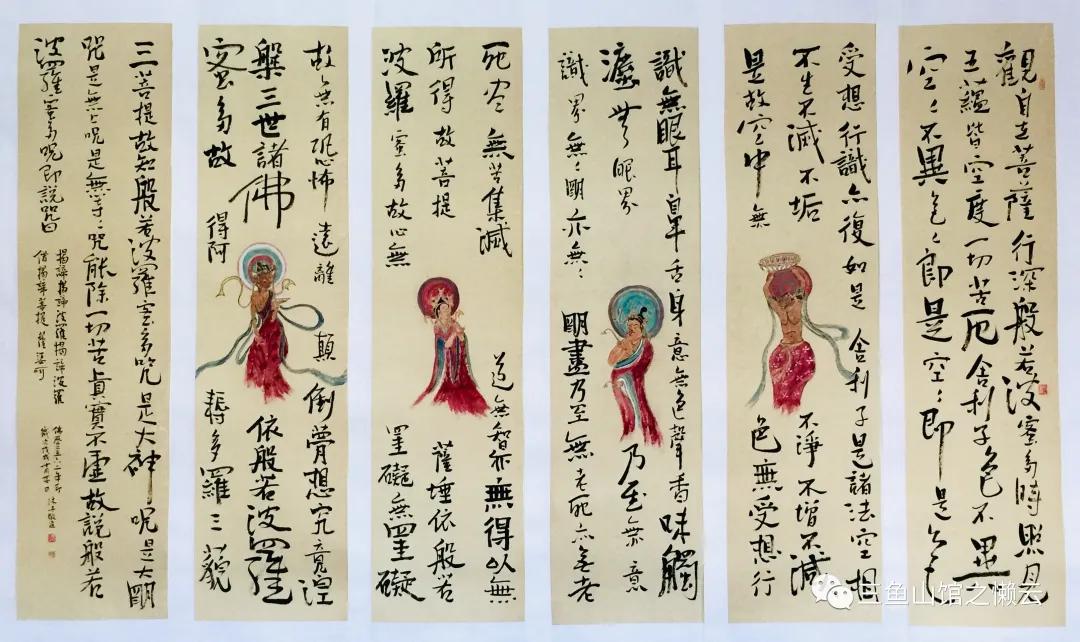 觀自在菩薩行深般若波蜜多時照見
五蘊皆空度一切苦厄舍利子色不異
空〻不異色〻即是空〻即是
受想行識亦復如是舍利子是諸法空相
不生不滅不垢不淨不增不減
是故空中無色無受想行
識無眼耳鼻舌身意無色聲香味觸
法無眼界乃至無意
識界無〻明亦無〻明盡乃至無老死亦無老
死盡無苦集滅道無智亦無得以無
所得故菩提薩埵依般若
波羅蜜多故心無罣礙無罣礙
故無有恐怖遠離顛倒夢想究竟涅
槃三世諸佛依般若波羅
蜜多故得阿耨多羅三藐
三菩提故知般若波羅蜜多咒是大神咒是大明
咒是無上咒是無等〻咒能除一切苦真實不虛故說般若
波羅蜜多咒即說咒曰
揭諦揭諦波羅揭諦波羅
僧揭諦菩提薩婆訶
三鱼山馆之懒云